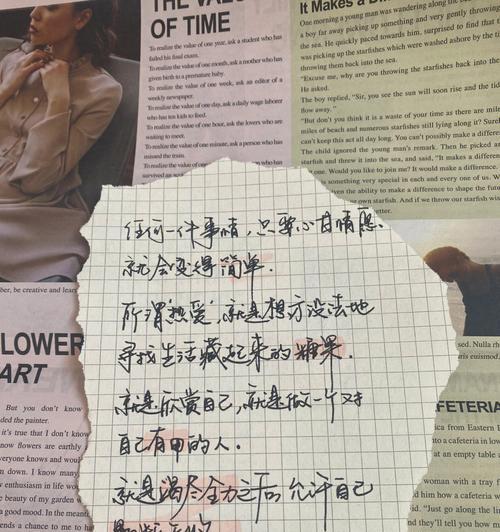 THE VALUE
OF TIME
To realize the value of one year, ask a student who has
failed his final exam.
To realize the value of one month, ask a mother who has
given birth to a premature baby.
To realize the value of one week, ask an editor of a
weekly newspaper.
To realize the value of one day, ask a daily wage laborer
who has ten kids to feed.
To realize the value of one hour, ask the lovers who are
waiting to meet.
To realize the value of one minute, ask a person who has
missed the train.
To realize the value of one
who has
survived an
It Makes a
One morning a young man was wandering along the
a boy far away picking up something and very gently throwing
the sea. He quickly paced towards him, surprised to find that
was picking up the starfishes which were washed ashore by the
throwing them back into the sea.
"Excuse me, why are you throwing the starfishes back into the
He asked.
The boy replied, "Sir, you see the sun will soon rise and the tid
flow away."
"But don't you think it is a waste of your time as there are mil
miles of beach and numerous starfishes still lying along it? Surel
can't keep this act all day long. You can't possibly make a differ
The child ignored the young man's remark. Then he picked an
starfish and threw it into the sea, and said, "It makes a differen
one. Would you like to join me? It would make a difference.
is something very special in each and every one of us. W
ven the ability to make a difference to shape the futu
own starfish. And if we throw our starfish wis
etter.
任何一件事情，只要心甘情愿、
就会变得简单.
所谓'热爱'，就是想方设法地
寻找生活藏起来的糖果.
就是欣赏自己，就是做一个对
自己有用的人.
就是竭尽全力之后，允许自己
ber, be creative and lear
LOWER
ART
But you don't know
ded the painter.
it's true that I don't know
now flowers are earthly
eryone knows and woul
n down. I know many
enthusiasm in life w
e beauty of my garden
a good mood. In the meant
ends a chance to me to ha
sed. Nulla rh
ris euismod.
FETERIA
ica from Eastern E
to a cafeteria in low
at an empty table a
woman with a tray f
d him how a cafeteria w
d. "Just go along the
nd they'll tell you how